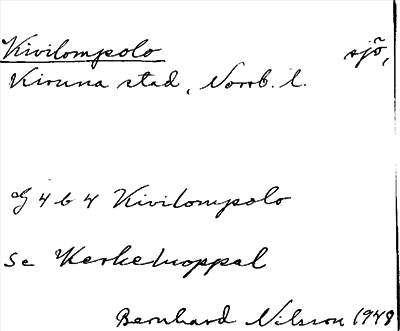 Kivilompolo sjö,
Kiruna stad, Norrb. l.
G 4 b 4 Kivilompolo
se Kerkeluoppal
Bernhard Nilsson 1948